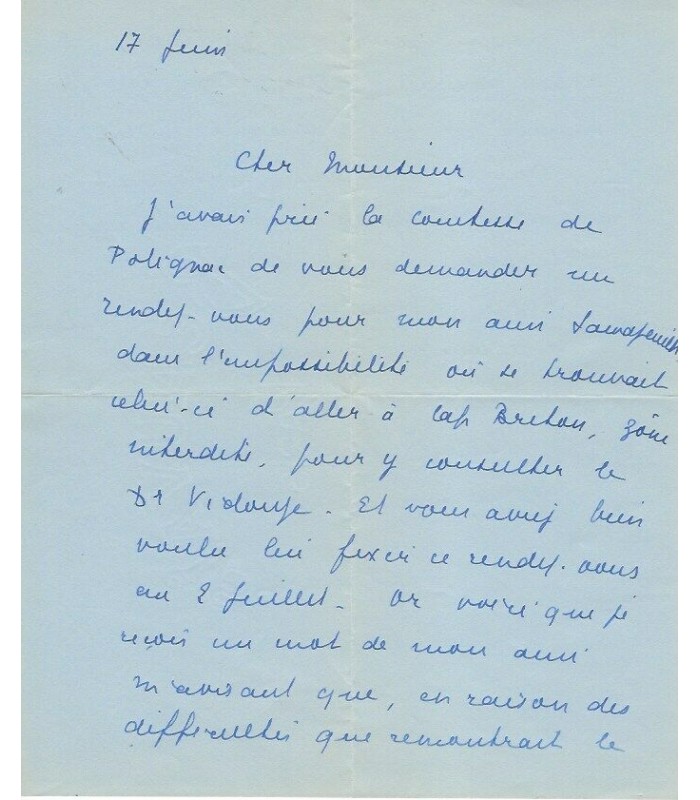 17 Juin
Cher Monsieur
J'avais prié la comtesse de
Polignac de vous demander un
rendez-vous pour mon ami
dans l'impossibilité où se trouvait
celui-ci d'aller à Cap Breton, zône
interdite, pour y consulter le
Dr Vidouze. Et vous avez bien
voulu lui fixer ce rendez-vous
au 2 Juillet. Or voici que je
reçois un mot de mon ami
m'avisant que, en raison des
difficultés que rencontrait le